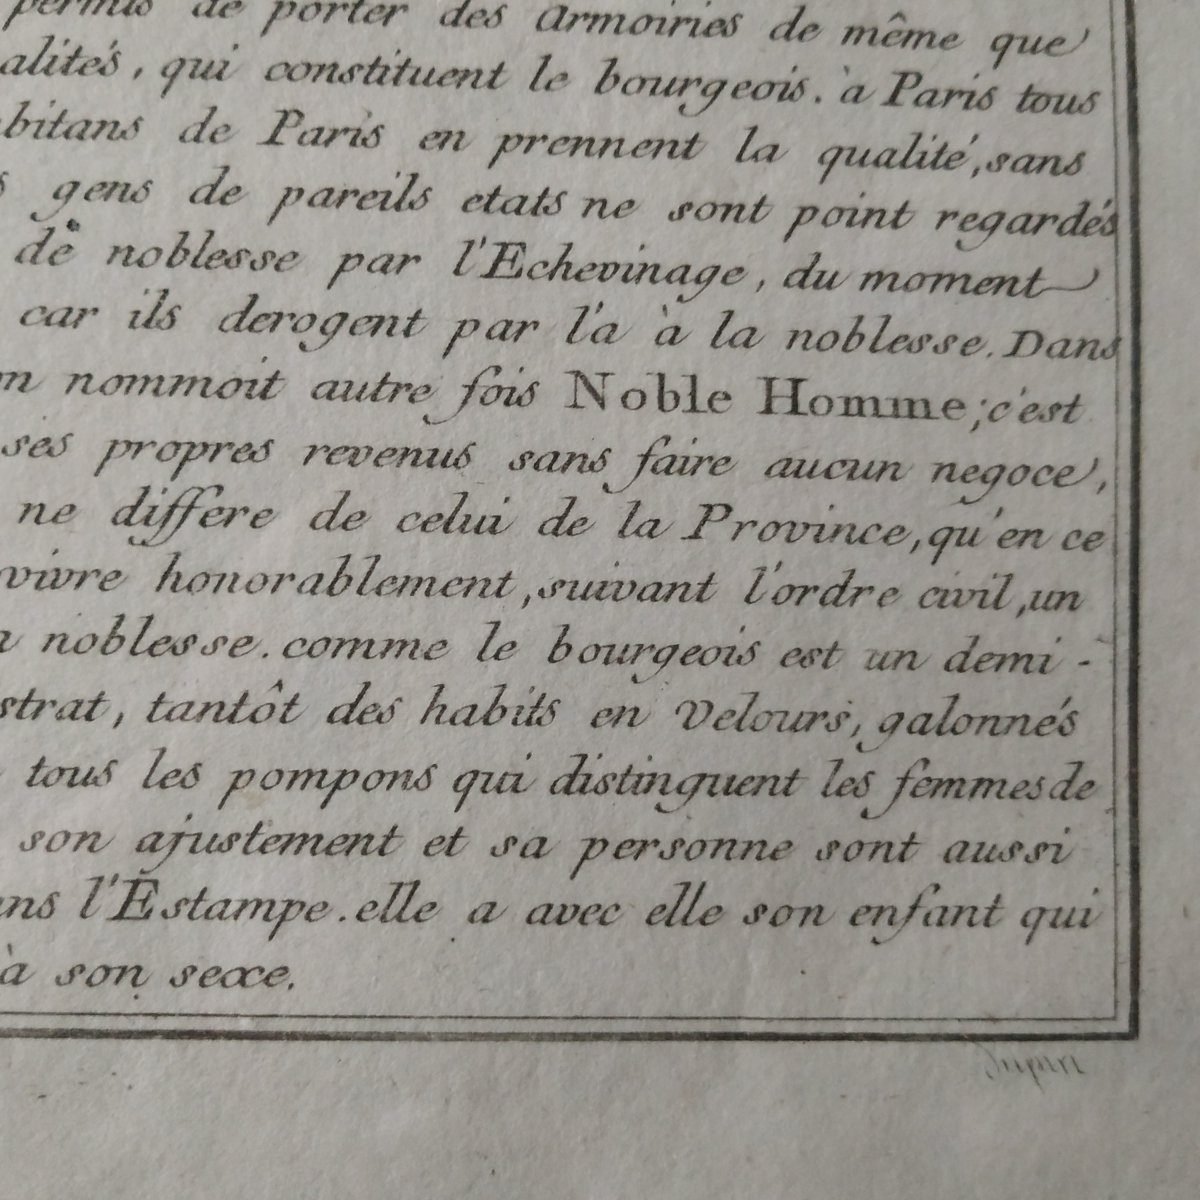 permis de porter des armoiries de même que
alités, qui constituent le bourgeois. à Paris tous
bitans de Paris en prennent la qualité, sans
s gens de pareils etats ne sont point regardés
de noblesse par l'Echevinage, du moment
car ils derogent par l'a à la noblesse. Dans
n nommoit autre fois Noble Homme; c'est
ses propres revenus sans faire aucun negoce,
ne differe de celui de la Province, qu'en ce
vivre honorablement, suivant l'ordre civil, un
a noblesse. comme le bourgeois est un demi-
strat, tantôt des habits en Velours, galonnés
tous les pompons qui distinguent les femmes de
son ajustement et sa personne sont aussi
ns l'Estampe. elle a avec elle son enfant qui
à son sexe.